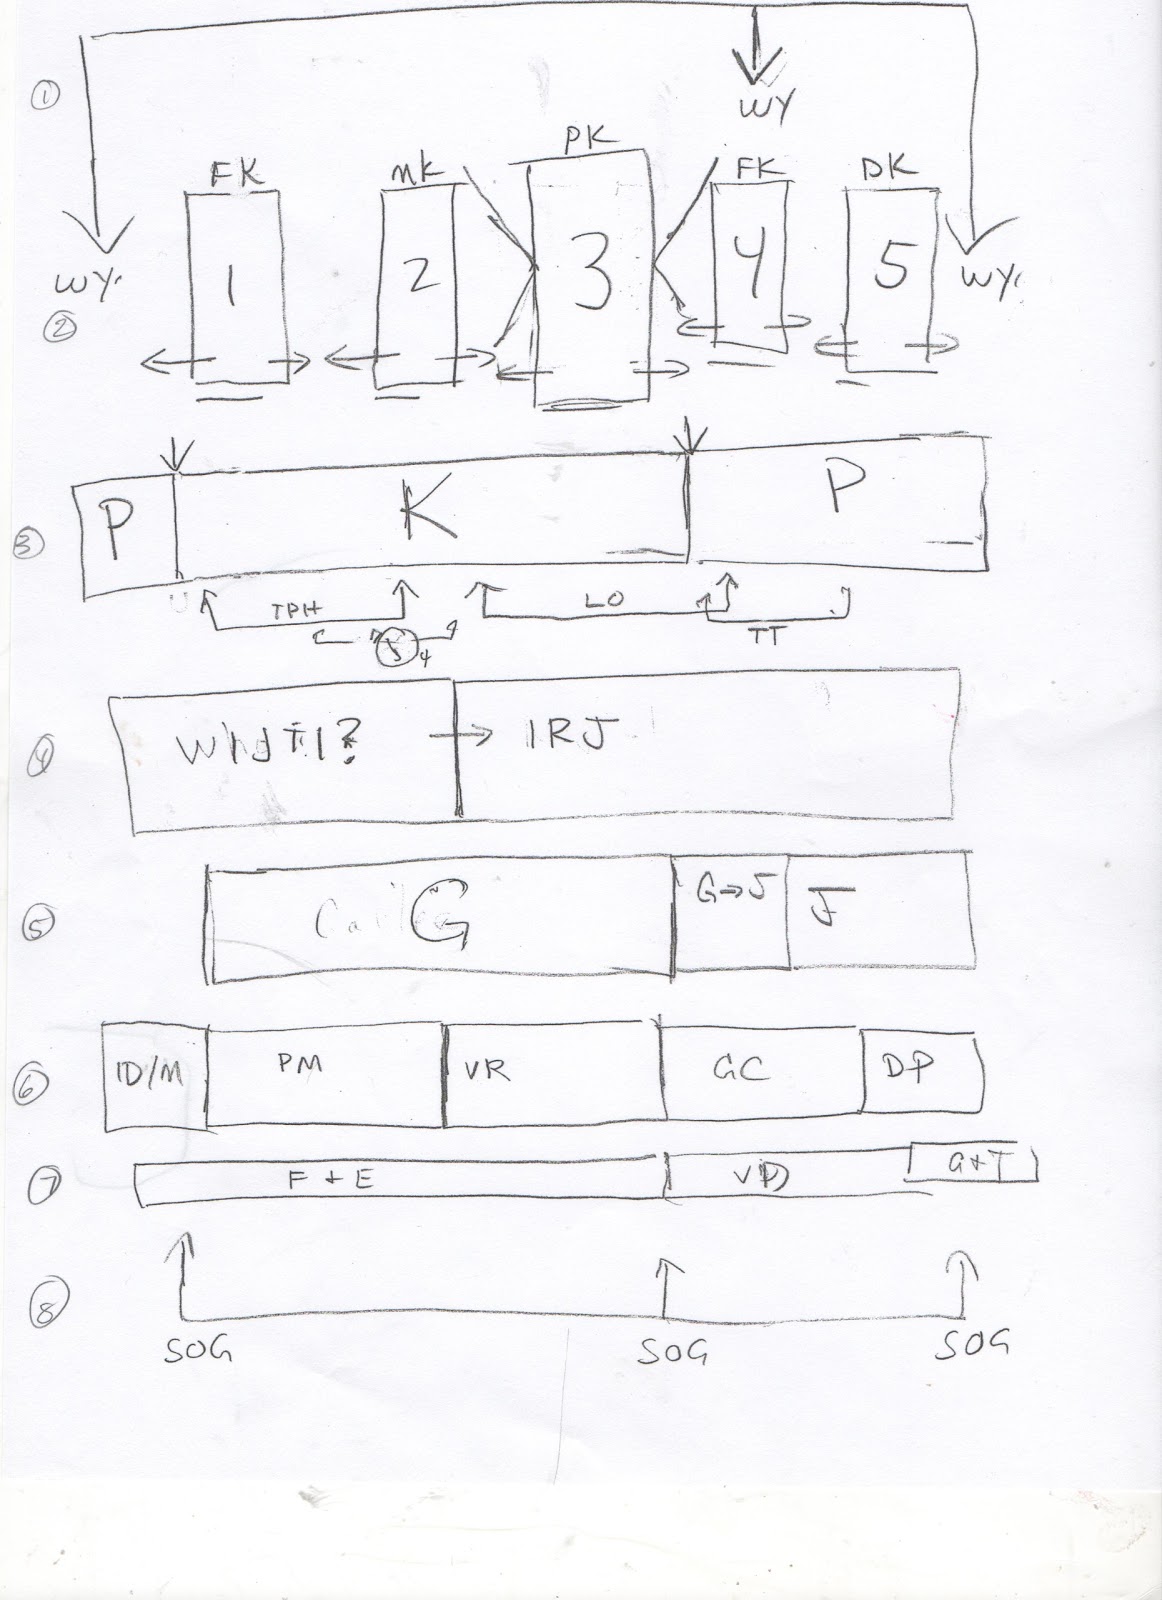 ①
WY
PK
FK
MK
FK
DK
1
2
3
4
5
WY
WY
②
③
P
K
P
TPH
LO
TT
④
IRJ
⑤
G
G→J
J
⑥
ID/M
PM
VR
GC
DP
⑦
F + E
VD
G+T
⑧
SOG
SOG
SOG